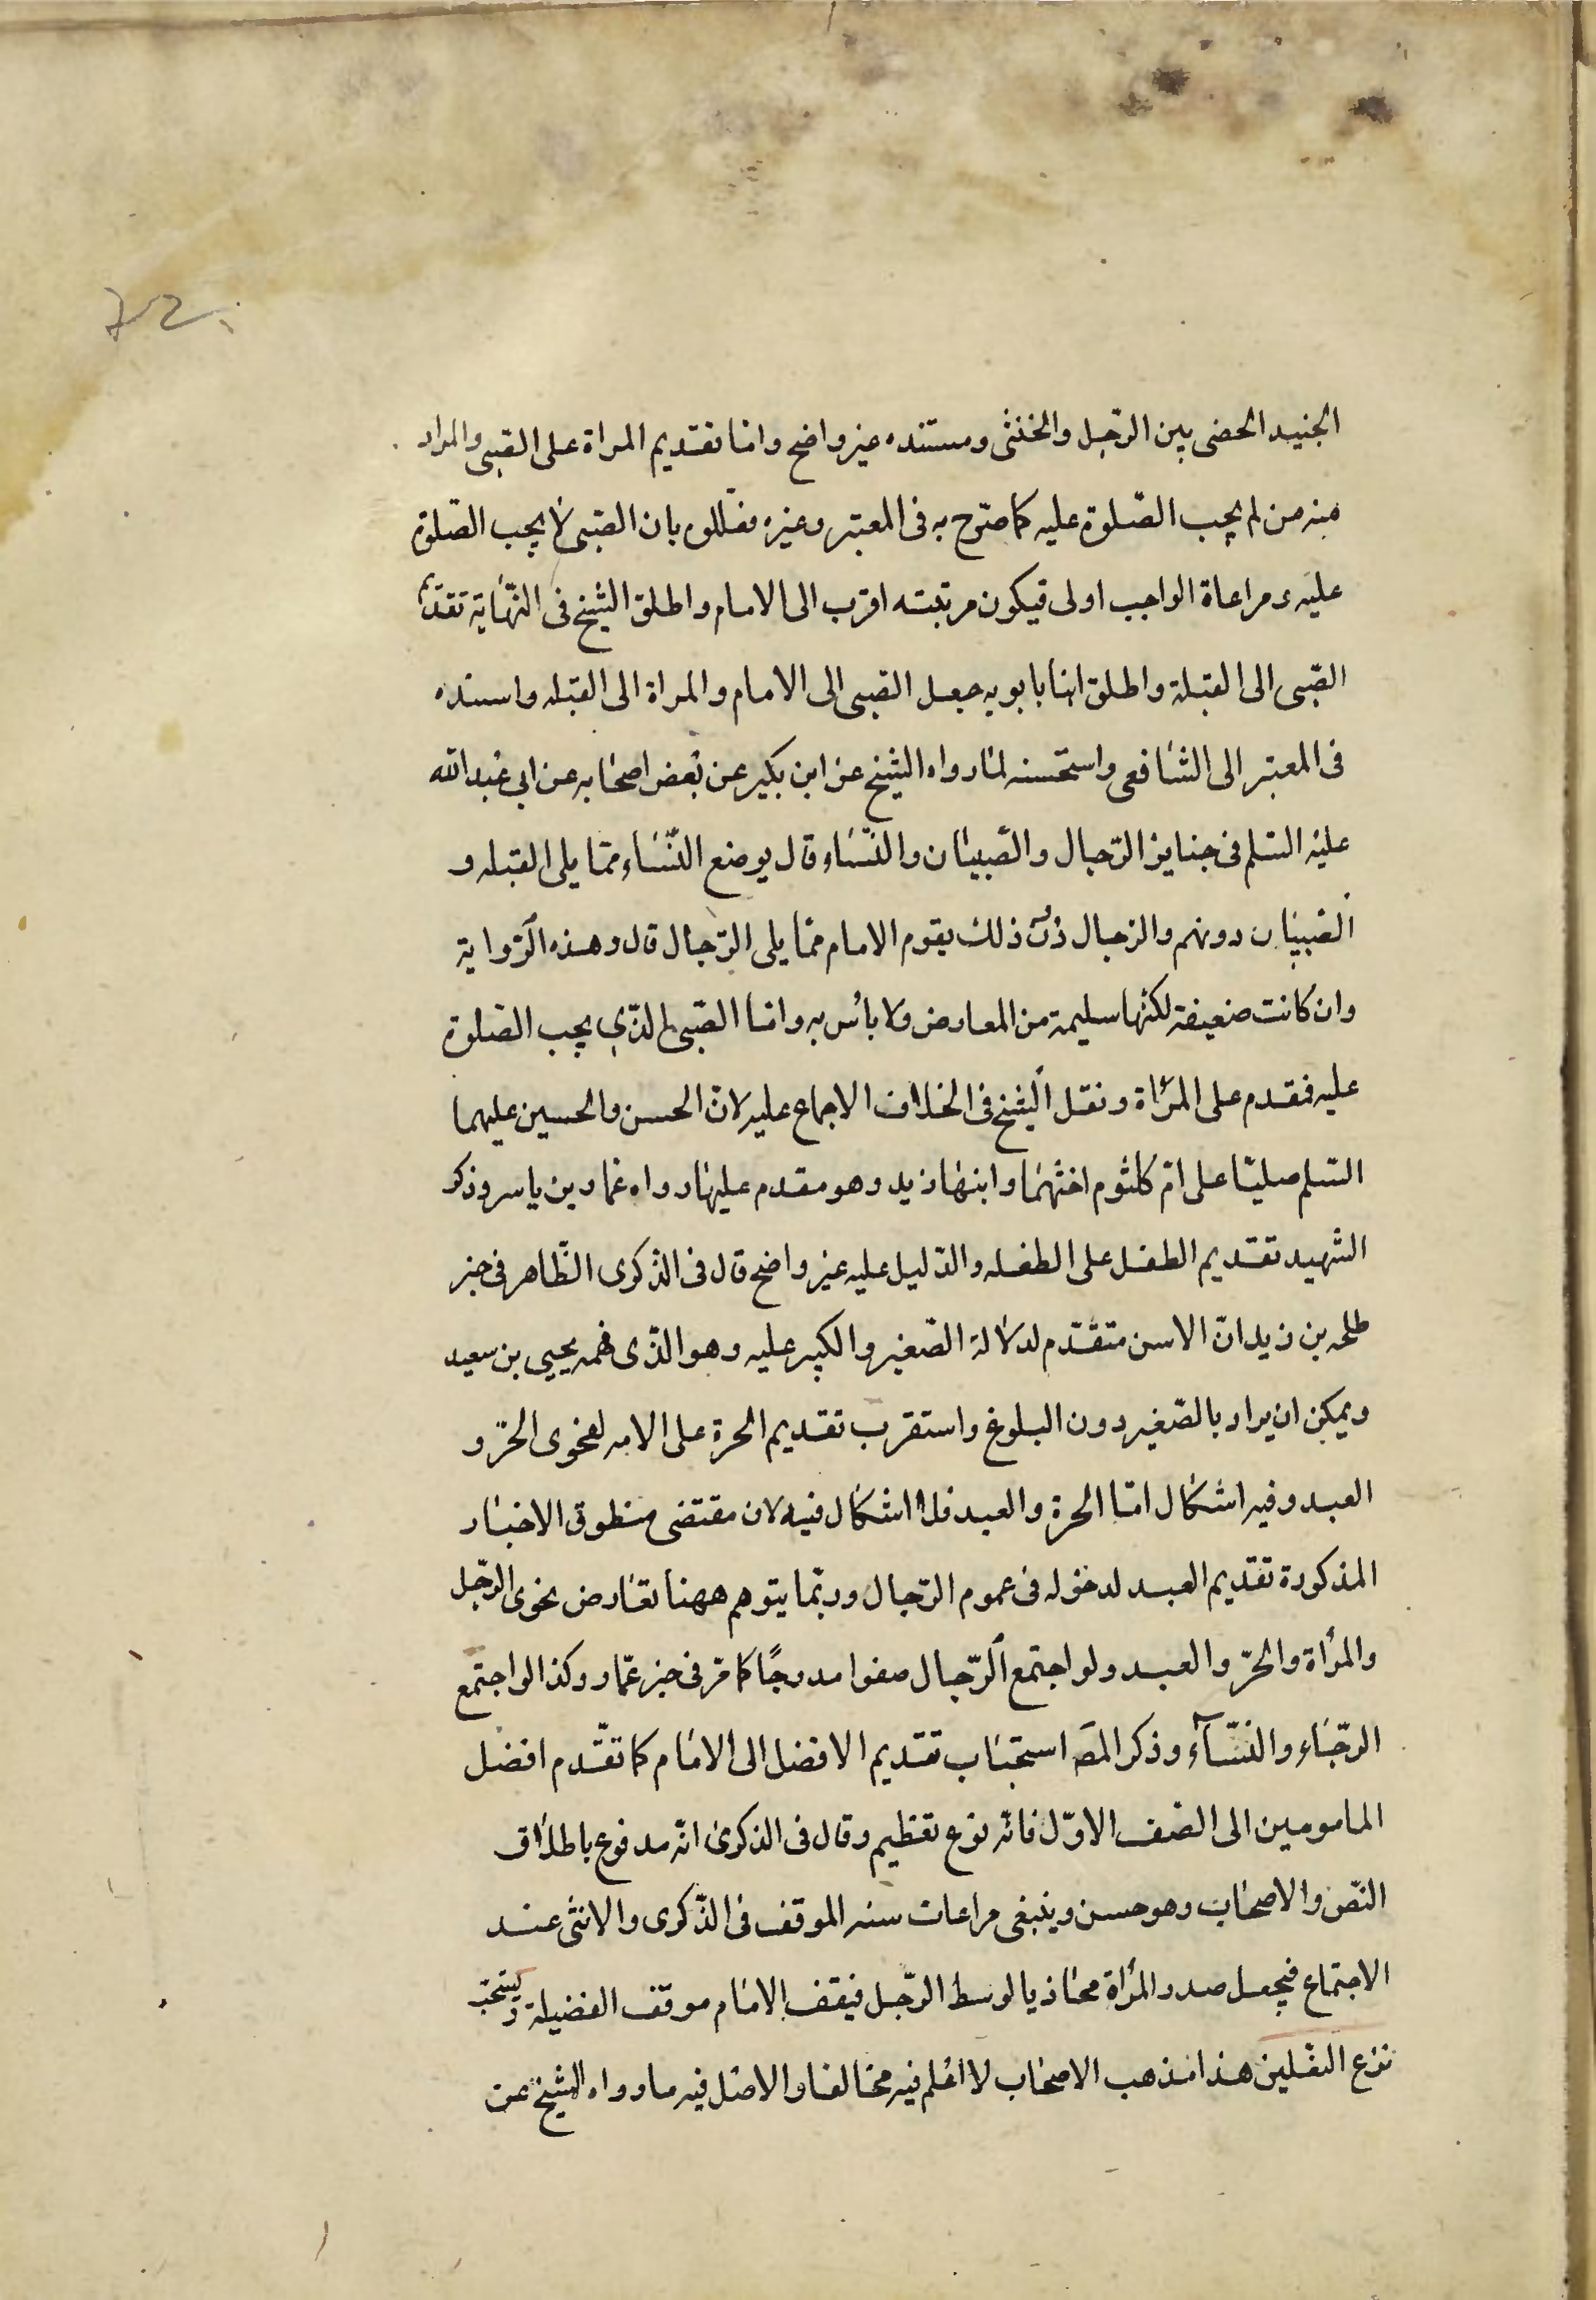 الجنيد الخصى بين الرّجل والخنثى ومستنده غير واضح وامّا تقديم المراة على الصّبى والمراد
منه من لم يجب الصّلوة عليه كما صرّح به فى المعتبر وغيره فعللوه بان الصّبى لا يجب الصّلوة
عليه ومراعاة الواجب اولى فيكون مرتبته اقرب الى الامام واطلق الشيخ فى النّهاية تقديم
الصّبى الى القبلة واطلق ابنا بابويه جعل الصبى الى الامام والمراة الى القبله واسنده
فى المعتبر الى الشافعى واستحسنه لما رواه الشيخ عن ابن بكير عن بعض اصحابه عن ابى عبد الله
عليه السّلم فى جنايز الرّجال والصّبيان والنّساء قال يوضع النّساء ممّا يلى القبله و
الصبيان دونهم والرجال دون ذلك يقوم الامام ممّا يلى الرّجال قال وهذه الرّواية
وان كانت ضعيفة لكنّها سليمة من المعارض ولا بأس به وامّا الصّبى الّذي يجب الصّلوة
عليه فمقدم على المرأة ونقل الشيخ فى الخلاف الاجماع عليه لانّ الحسن والحسين عليهما
السّلم صليّا على امّ كلثوم اختهما وابنها زيد وهو مقدم عليها رواه عمار بن ياسر وذكر
الشهيد تقديم الطفل على الطفله والدّليل عليه غير واضح قال فى الذكرى الظّاهر فى خبر
طلحه بن زيد انّ الاسن متقدّم لدلالة الصّغير والكبير عليه وهو الّذى فهمه يحيى بن سعيد
ويمكن ان يراد بالصّغير دون البلوغ واستقرب تقديم الحرة على الامه لفحوى الحرّ و
العبد وفيه اشكال امّا الحرة والعبد فلا اشكال فيه لان مقتضى منطوق الاخبار
المذكورة تقديم العبد لدخوله فى عموم الرّجال وربّما يتوهم ههنا تعارض فحوى الرّجل
والمرأة والحرّ والعبد ولو اجتمع الرّجال صفوا مدرجًا كما مرّ فى خبر عمّار وكذا لو اجتمع
الرّجاء والنّساء وذكر المصَ استحباب تقديم الافضل الى الامام كما تقّدم افضل
المامومين الى الصّف الاوّل فانّه نوع تعظيم وقال فى الذكرى انّه مدفوع باطلاق
النّص والاصحاب وهو حسن وينبغى مراعات سنه الموقف فى الذّكرى والانثى عند
الاجتماع فيجعل صدر المرأة محاذيا لوسط الرّجل فيقف الامام موقف الفضيلة ويستحبّ
نزع النعلين هذا مذهب الاصحاب لا اعلم فيه مخالفا والاصل فيه ما رواه الشيخ عن